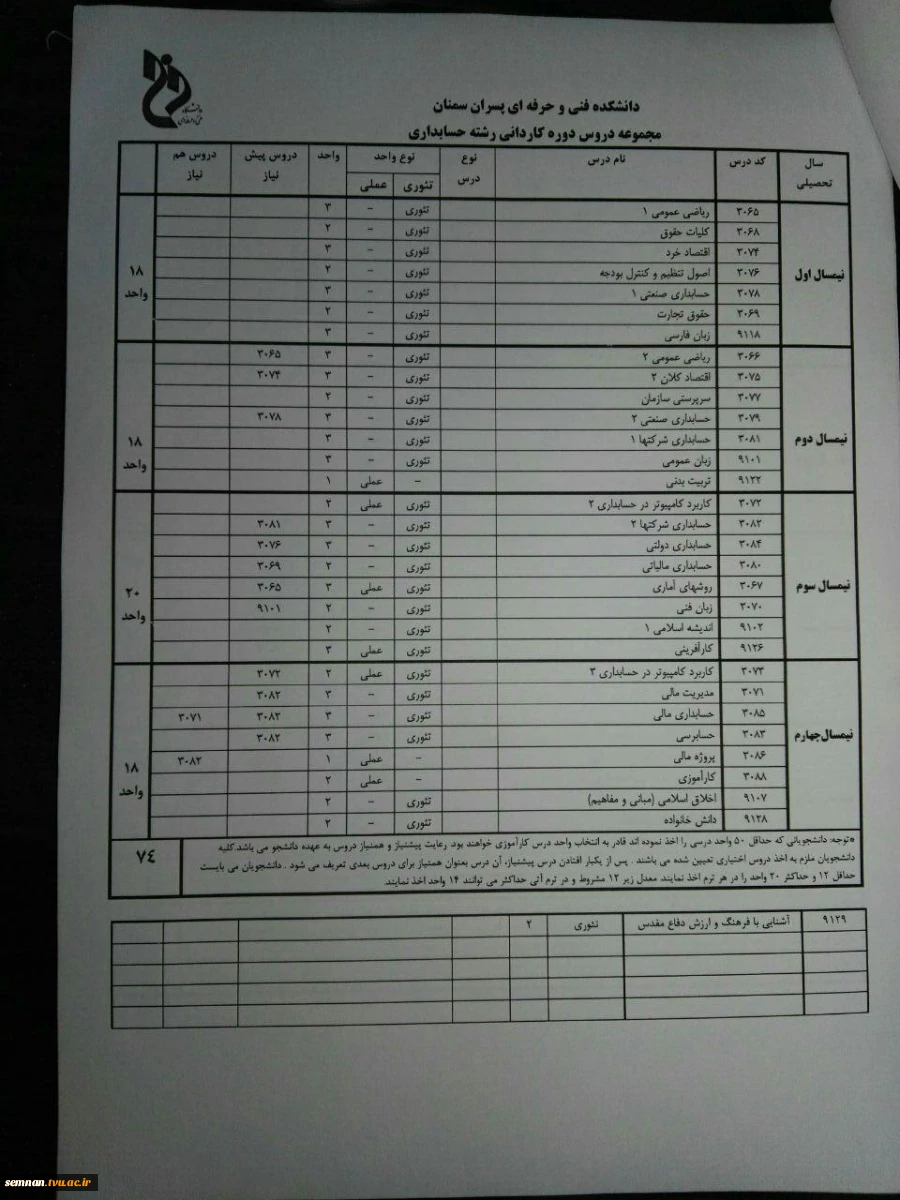 دانشگاه
فنی و حرفه‌ای
دانشکده فنی و حرفه ای پسران سمنان
مجموعه دروس دوره کاردانی رشته حسابداری
سال تحصیلی کد درس نام درس نوع درس نوع واحد تئوری عملی واحد دروس پیش نیاز دروس هم نیاز
نیمسال اول ۱۸ واحد
۳۰۶۵ ریاضی عمومی ۱ تئوری - ۳
۳۰۶۸ کلیات حقوق تئوری - ۲
۳۰۷۴ اقتصاد خرد تئوری - ۳
۳۰۷۶ اصول تنظیم و کنترل بودجه تئوری - ۲
۳۰۷۸ حسابداری صنعتی ۱ تئوری - ۳
۳۰۶۹ حقوق تجارت تئوری - ۲
۹۱۱۸ زبان فارسی تئوری - ۳
نیمسال دوم ۱۸ واحد
۳۰۶۶ ریاضی عمومی ۲ تئوری - ۳ ۳۰۶۵
۳۰۷۵ اقتصاد کلان ۲ تئوری - ۳ ۳۰۷۴
۳۰۷۷ سرپرستی سازمان تئوری - ۲
۳۰۷۹ حسابداری صنعتی ۲ تئوری - ۳ ۳۰۷۸
۳۰۸۱ حسابداری شرکتها ۱ تئوری - ۳
۹۱۰۱ زبان عمومی تئوری - ۳
۹۱۲۲ تربیت بدنی - عملی ۱
نیمسال سوم ۲۰ واحد
۳۰۷۲ کاربرد کامپیوتر در حسابداری ۲ تئوری عملی ۲
۳۰۸۲ حسابداری شرکتها ۲ تئوری - ۳ ۳۰۸۱
۳۰۸۴ حسابداری دولتی تئوری - ۳ ۳۰۷۶
۳۰۸۰ حسابداری مالیاتی تئوری - ۲ ۳۰۶۹
۳۰۶۷ روشهای آماری تئوری عملی ۳ ۳۰۶۵
۳۰۷۰ زبان فنی تئوری - ۲ ۹۱۰۱
۹۱۰۲ اندیشه اسلامی ۱ تئوری - ۲
۹۱۲۶ کارآفرینی تئوری عملی ۳
نیمسال چهارم ۱۸ واحد
۳۰۷۳ کاربرد کامپیوتر در حسابداری ۳ تئوری عملی ۲ ۳۰۷۲
۳۰۷۱ مدیریت مالی تئوری - ۳ ۳۰۸۲
۳۰۸۵ حسابداری مالی تئوری - ۳ ۳۰۸۲ ۳۰۷۱
۳۰۸۳ حسابرسی تئوری - ۳ ۳۰۸۲
۳۰۸۶ پروژه مالی - عملی ۱ ۳۰۸۲
۳۰۸۸ کارآموزی - عملی ۲
۹۱۰۷ اخلاق اسلامی (مبانی و مفاهیم) تئوری - ۲
۹۱۲۸ دانش خانواده تئوری - ۲
*توجه: دانشجویانی که حداقل ۵۰ واحد درسی را اخذ نموده اند قادر به انتخاب واحد درس کارآموزی خواهند بود. رعایت پیشنیاز و همنیاز دروس به عهده دانشجو می باشد.کلیه
دانشجویان ملزم به اخذ دروس اختیاری تعیین شده می باشند . پس از یکبار افتادن درس پیشنیاز، آن درس بعنوان همنیاز برای دروس بعدی تعریف می شود . دانشجویان می بایست
حداقل ۱۲ و حداکثر ۲۰ واحد را در هر ترم اخذ نمایند. معدل زیر ۱۲ مشروط و در ترم آتی حداکثر می توانند ۱۴ واحد اخذ نمایند.
۷۴
۹۱۲۹ آشنایی با فرهنگ و ارزش دفاع مقدس تئوری ۲
semnan.tvu.ac.ir